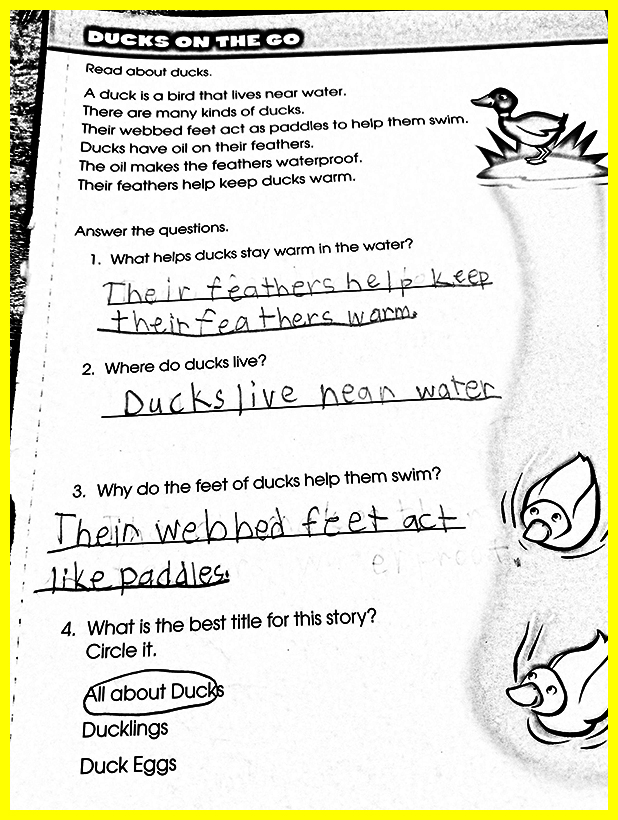 DUCKS ON THE GO
Read about ducks.
A duck is a bird that lives near water.
There are many kinds of ducks.
Their webbed feet act as paddles to help them swim.
Ducks have oil on their feathers.
The oil makes the feathers waterproof.
Their feathers help keep ducks warm.
Answer the questions.
1. What helps ducks stay warm in the water?
Their feathers help keep
their feathers warm.
2. Where do ducks live?
Ducks live near water
3. Why do the feet of ducks help them swim?
Their webbed feet act
like paddles.
4. What is the best title for this story?
Circle it.
All about Ducks
Ducklings
Duck Eggs